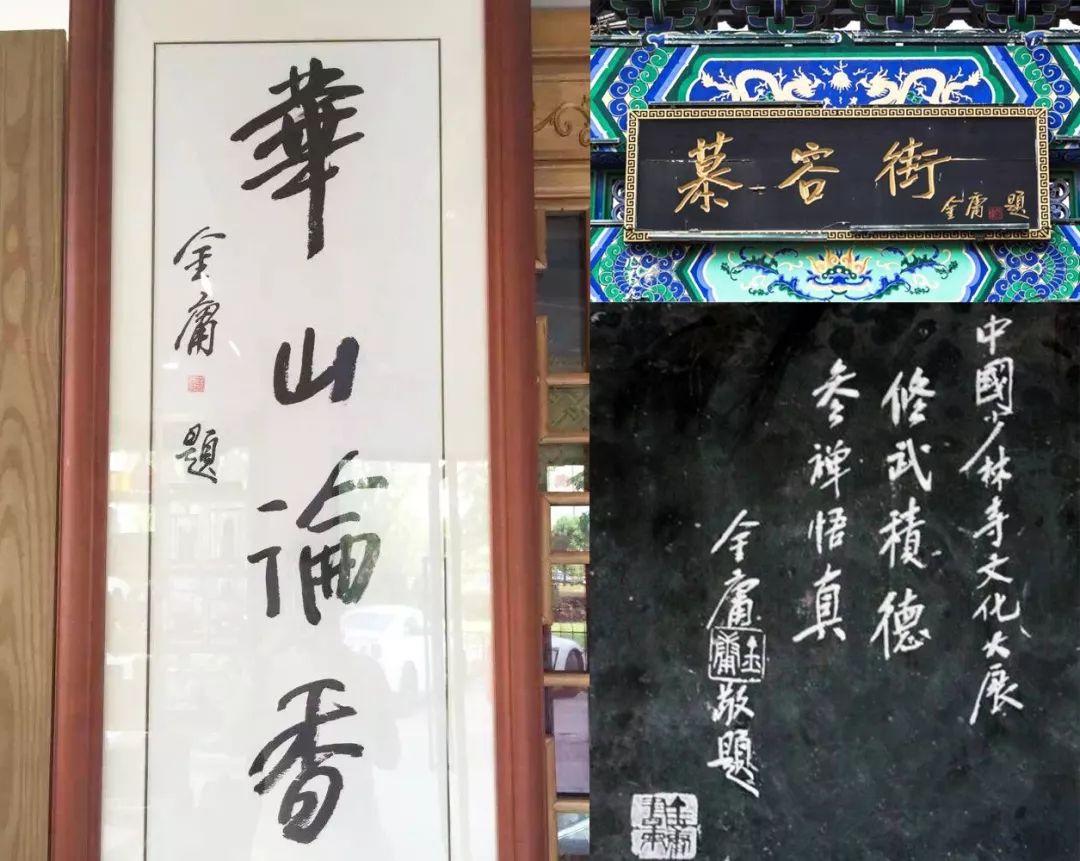 華山論香
金庸
題
慕容街
金庸
題
中國少林寺文化大展
修武積德
參禅悟真
金庸
金庸
敬題